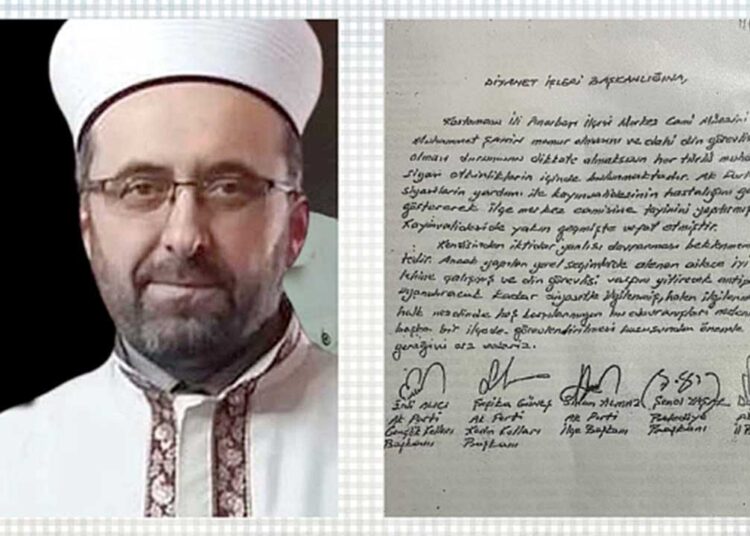 DİYANET İŞLERİ BAŞKANLIĞINA,
Kastamonu İli Pınarbaşı İlçesi Merkez Cami Müezzini
Muhammet ŞAHİN memur olmasını ve dahi din görevlisi
olması durumunu dikkate almaksızın her türlü muha
siyasi etkinliklerin içinde bulunmaktadır. Ak Parti
siyasilerin yardımı ile kayınvalidesinin hastalığını
göstererek ilçe merkez camisine tayinini yaptırmış
Kayınvalideside yakın geçmişte vefat etmiştir.
Kendisinden iktidar yanlısı davranması beklenme
tedir. Ancak yapılan yerel seçimlerde alenen ailece İyi
lehine çalışmış ve din görevlisi vasfını yitirecek antip
uyandıracak kadar siyasetle ilgilenmiş, halen ilgilenm
halk nezdinde hoş karşılanmayan bu davranışları nedeni
başka bir ilçede görevlendirilmesi hususundan önemle
gereğini arz ederiz.
ALICI Güneş YILMAZ Şenol YAŞAR
Ak Parti Ak Parti Ak Parti Belediye
Gençlik Kolları Kadın Kolları İlçe Başkanı Başkanı
Başkanı Başkanı